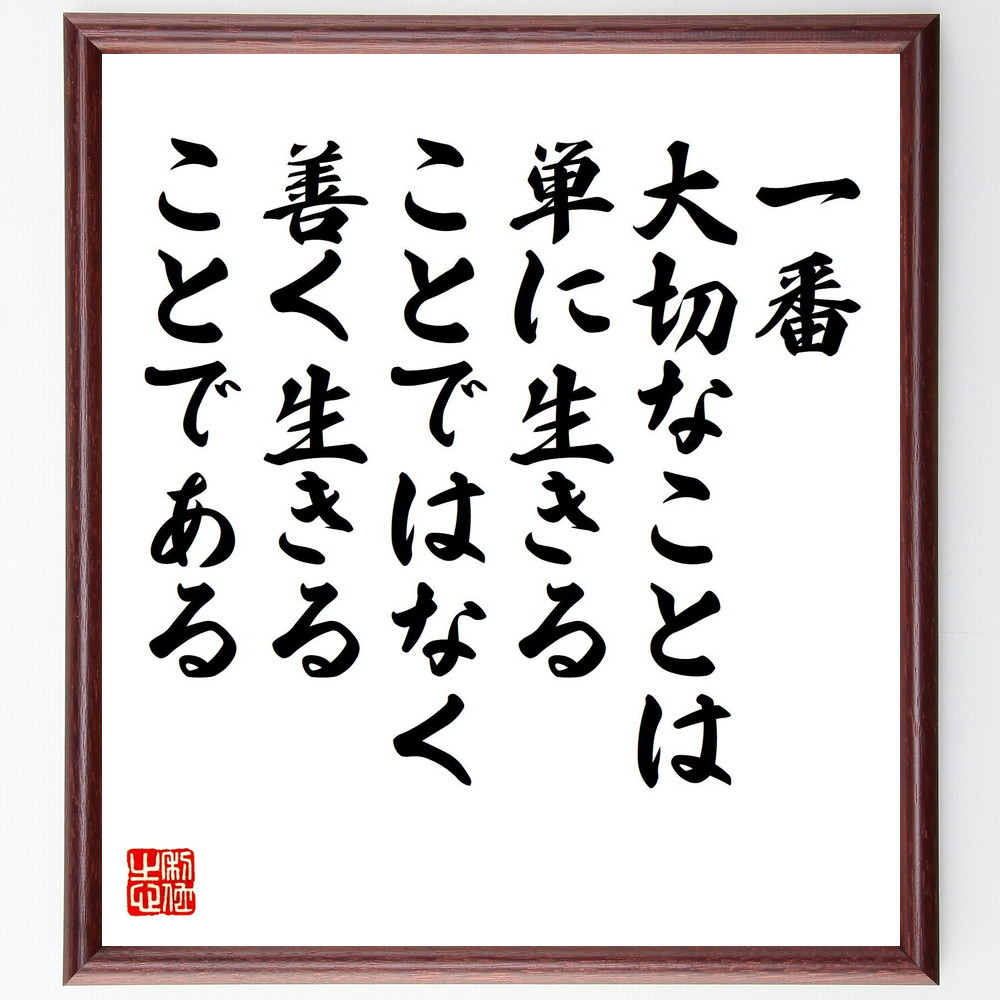 一番
大切なことは
単に生きる
ことではなく
善く生きる
ことである